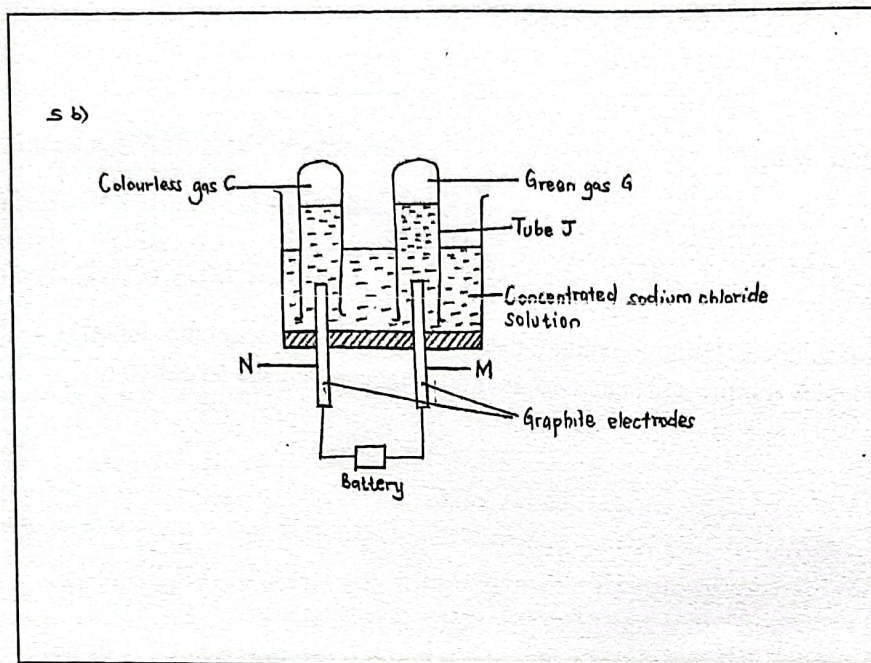 5 b)
Colourless gas C
Green gas G
Tube J
Concentrated sodium chloride
solution
N
M
Graphite electrodes
Battery